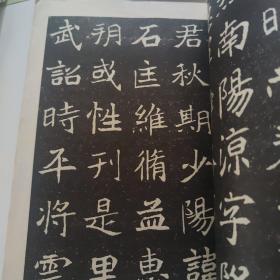 南陽字
君秋期少陽諱
石匡維脩益惠
朔或性刊是里
武詔時平將雲